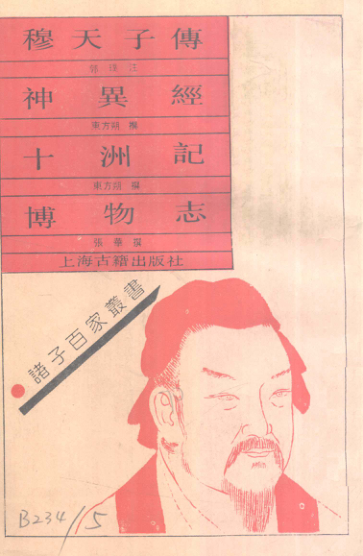 穆天子傳
神異經
東方朔 撰
十洲記
東方朔 撰
博物志
張華 撰
上海古籍出版社
諸子百家叢書
B234/5